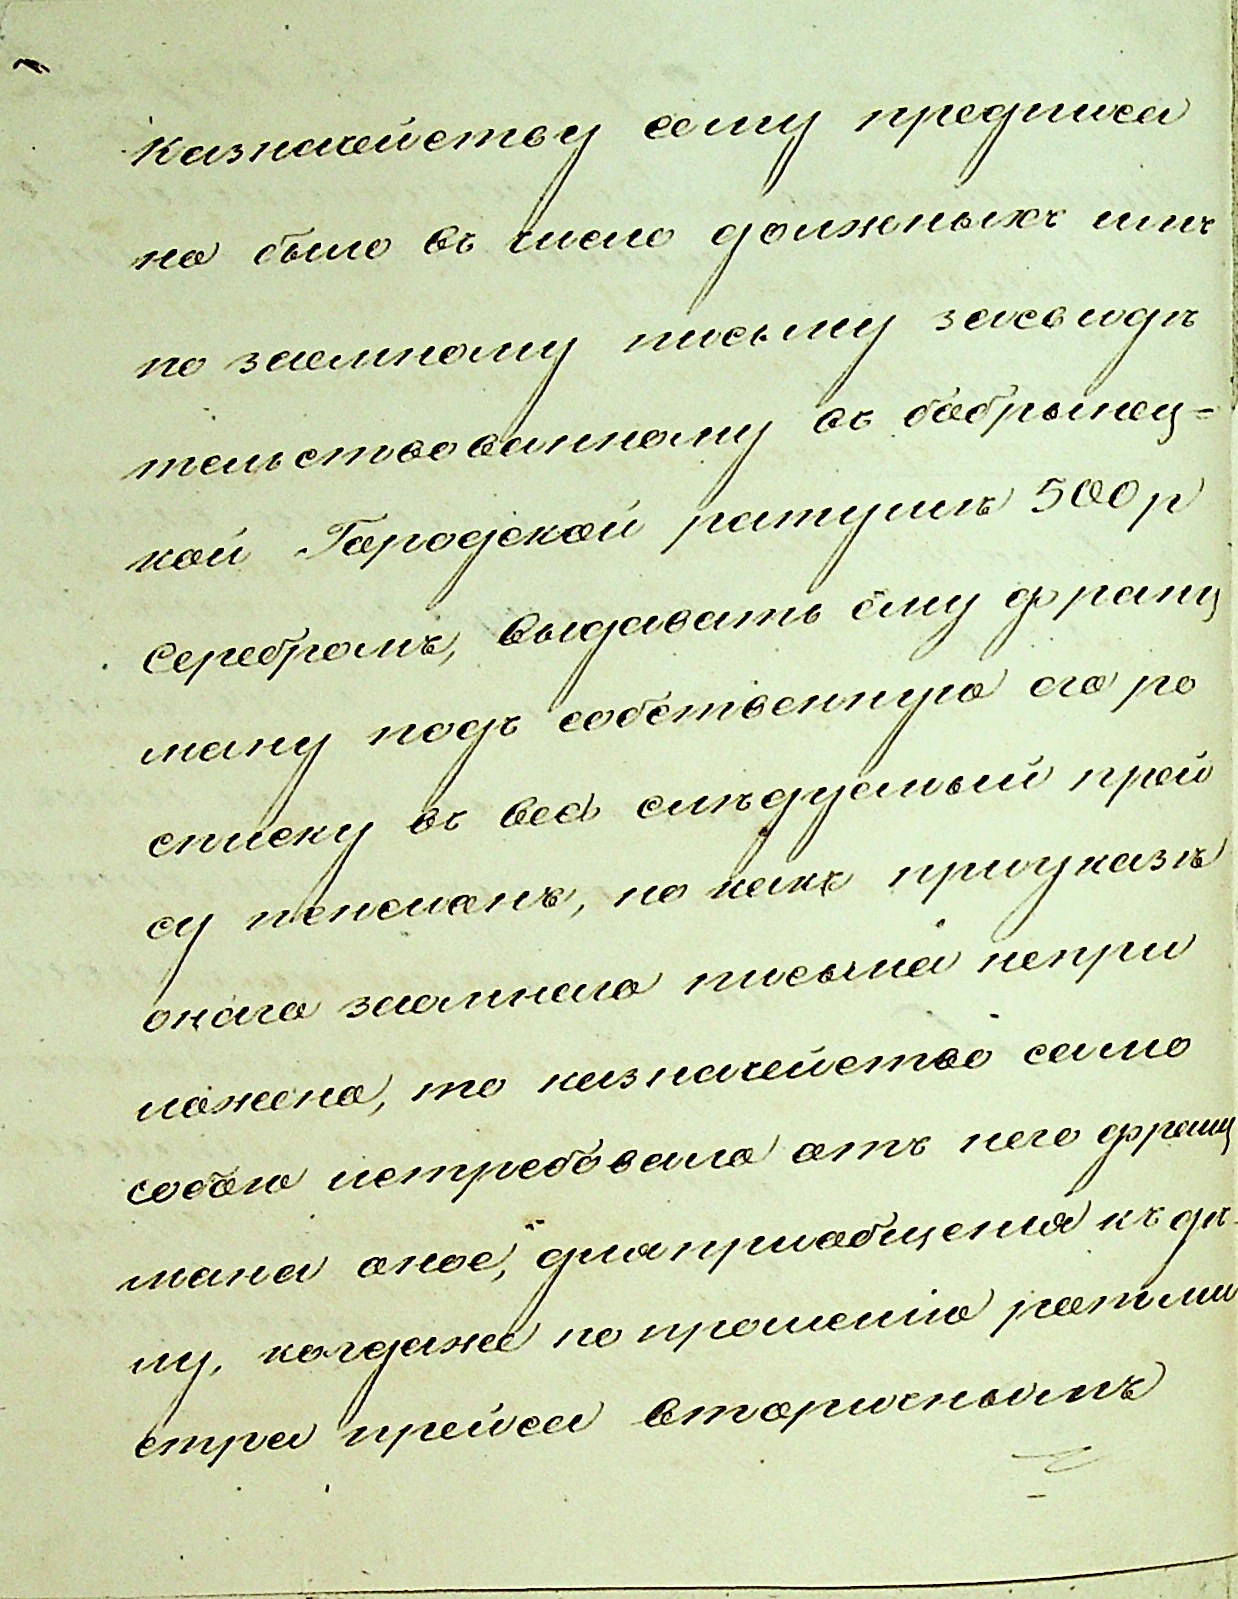 казначейству сему предписа
но было въ число должныхъ имъ
по заемному письму засвидѣ
тельствованному въ бобрынец=
кой Городской ратушѣ 500 р
серебромъ, выдавать ему франц
ману подъ собственную его ро
списку въ весь слѣдуемый прей
су пенсіонъ, но какъ приуказѣ
онаго заемнаго письма непри
ложено, то казначейство само
собою истребовало отъ него франц
мана оное, для приобщенія къ дѣ-
лу, когдаже по прошенію ратми
стра прейса вторичнымъ